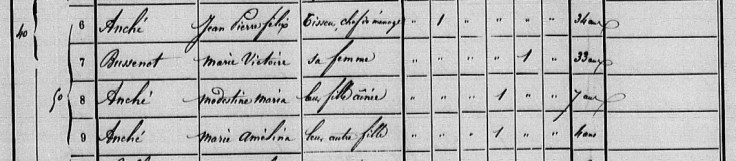 40 6 Anché Jean Pierre félix Tisseur, chef de ménage " 1 " " " " 34 ans
7 Bussenot Marie Victoire sa femme " " " " 1 " 33 ans
50 8 Anché Modestine Maria leur fille ainée " " " 1 " " 7 ans
9 Anché Marie Amélina leur autre fille " " " 1 " " 4 ans